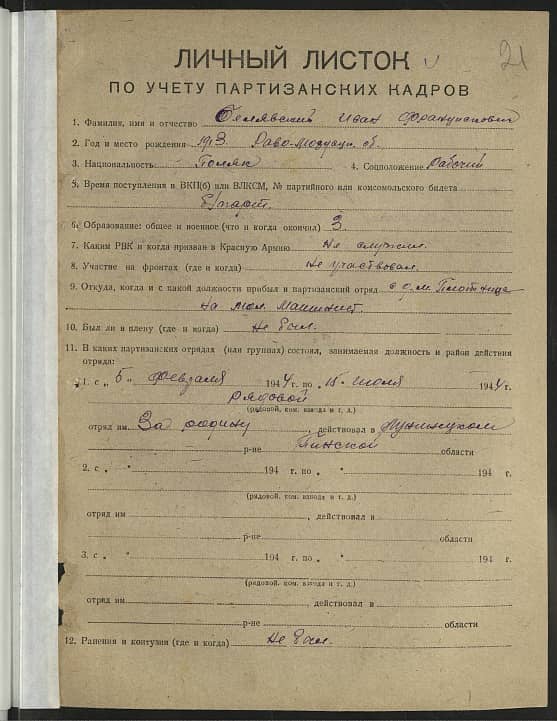 21
ЛИЧНЫЙ ЛИСТОК
ПО УЧЕТУ ПАРТИЗАНСКИХ КАДРОВ
1. Фамилия, имя и отчество Белявский Иван Францискович
2. Год и место рождения 1913
3. Национальность Поляк 4. Соцположение Рабочий
5. Время поступления в ВКП(б) или ВЛКСМ, № партийного или комсомольского билета
б/парт.
6. Образование: общее и военное (что и когда окончил) 3
7. Каким РВК и когда призван в Красную Армию Не служил.
8. Участие на фронтах (где и когда) Не участвовал.
9. Откуда, когда и с какой должности прибыл в партизанский отряд с д.м. Плотница
на Машинист.
10. Был ли в плену (где и когда) Не был.
11. В каких партизанских отрядах (или группах) состоял, занимаемая должность и район действия
отряда:
1. с „5„ Февраля 1944 г. по „15„ Июля 1944 г.
рядовой
(рядовой, ком. взвода и т. д.)
отряд им. За родину действовал в Лунинуком
р-не Пинской области
2. с „ „ 194 г. по „ „ 194 г.
(рядовой, ком. взвода и т. д.)
отряд им , действовал в
р-не области
3. с „ „ 194 г. по „ „ 194 г.
(рядовой, ком. взвода и т. д.)
отряд им , действовал в
р-не области
12. Ранения и контузии (где и когда) Не был.